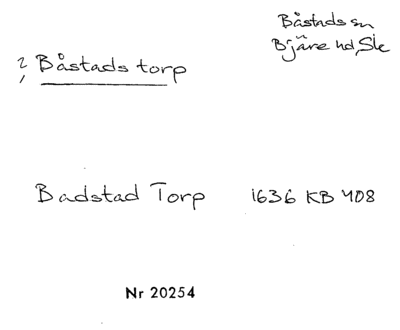 Båstads sn
Bjäre hd, Sk
2, Båstads torp
Badstad Torp 1636 KB 408
Nr 20254